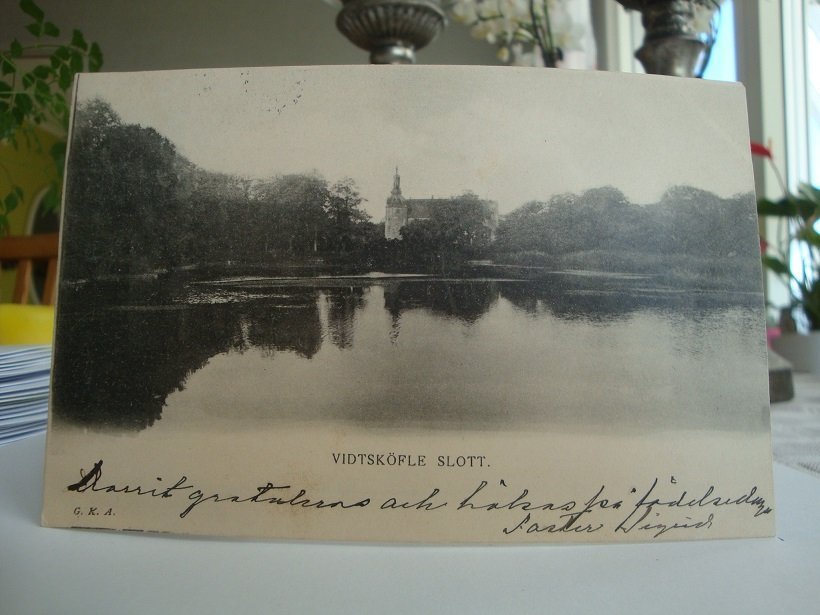 VIDTSKÖFLE SLOTT.
Dorrit gratuleras och hälsas på födelsedagen
G. K. A.
Faster Sigrid